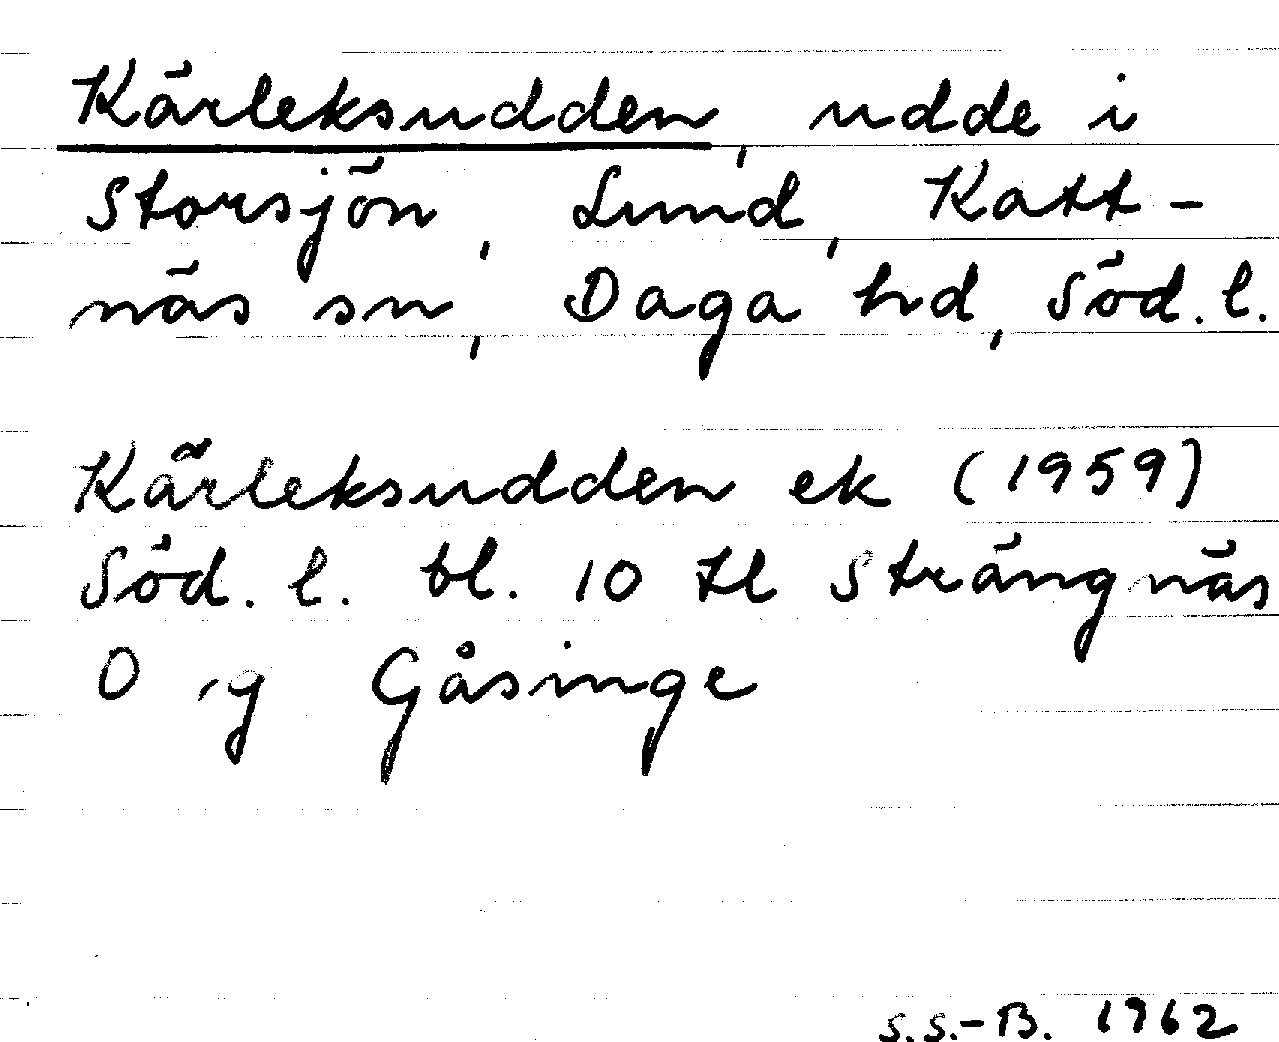 Kärleksudden, udde i
Storsjön, Lund, Katt-
näs sn, Daga hd, Söd. l.
Kärleksudden ek (1959)
Söd. l. bl. 10 tl Strängnäs
O ig Gåsinge
S.S.-B. 1962